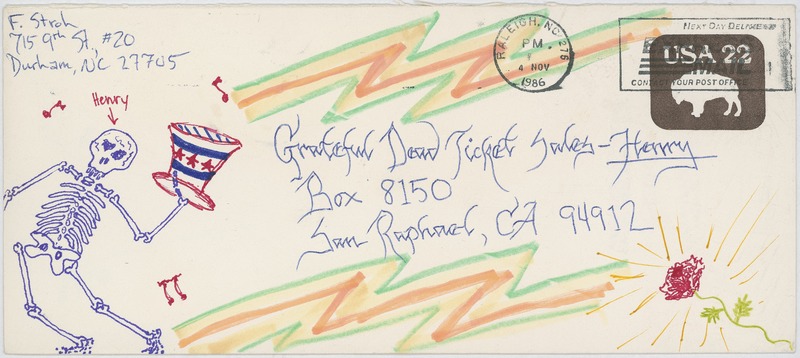 F. Stroh
715 9th St., #20
Durham, NC 27705
Henry
RALEIGH, NC 276
PM
4 NOV
1986
NEXT DAY DELIVERY
CONTACT YOUR POST OFFICE
USA 22
Grateful Dead Ticket Sales-Henry
Box 8150
San Raphael, CA 94912